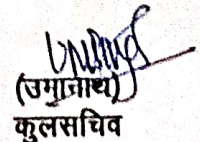 (उमानाथ)
कुलसचिव